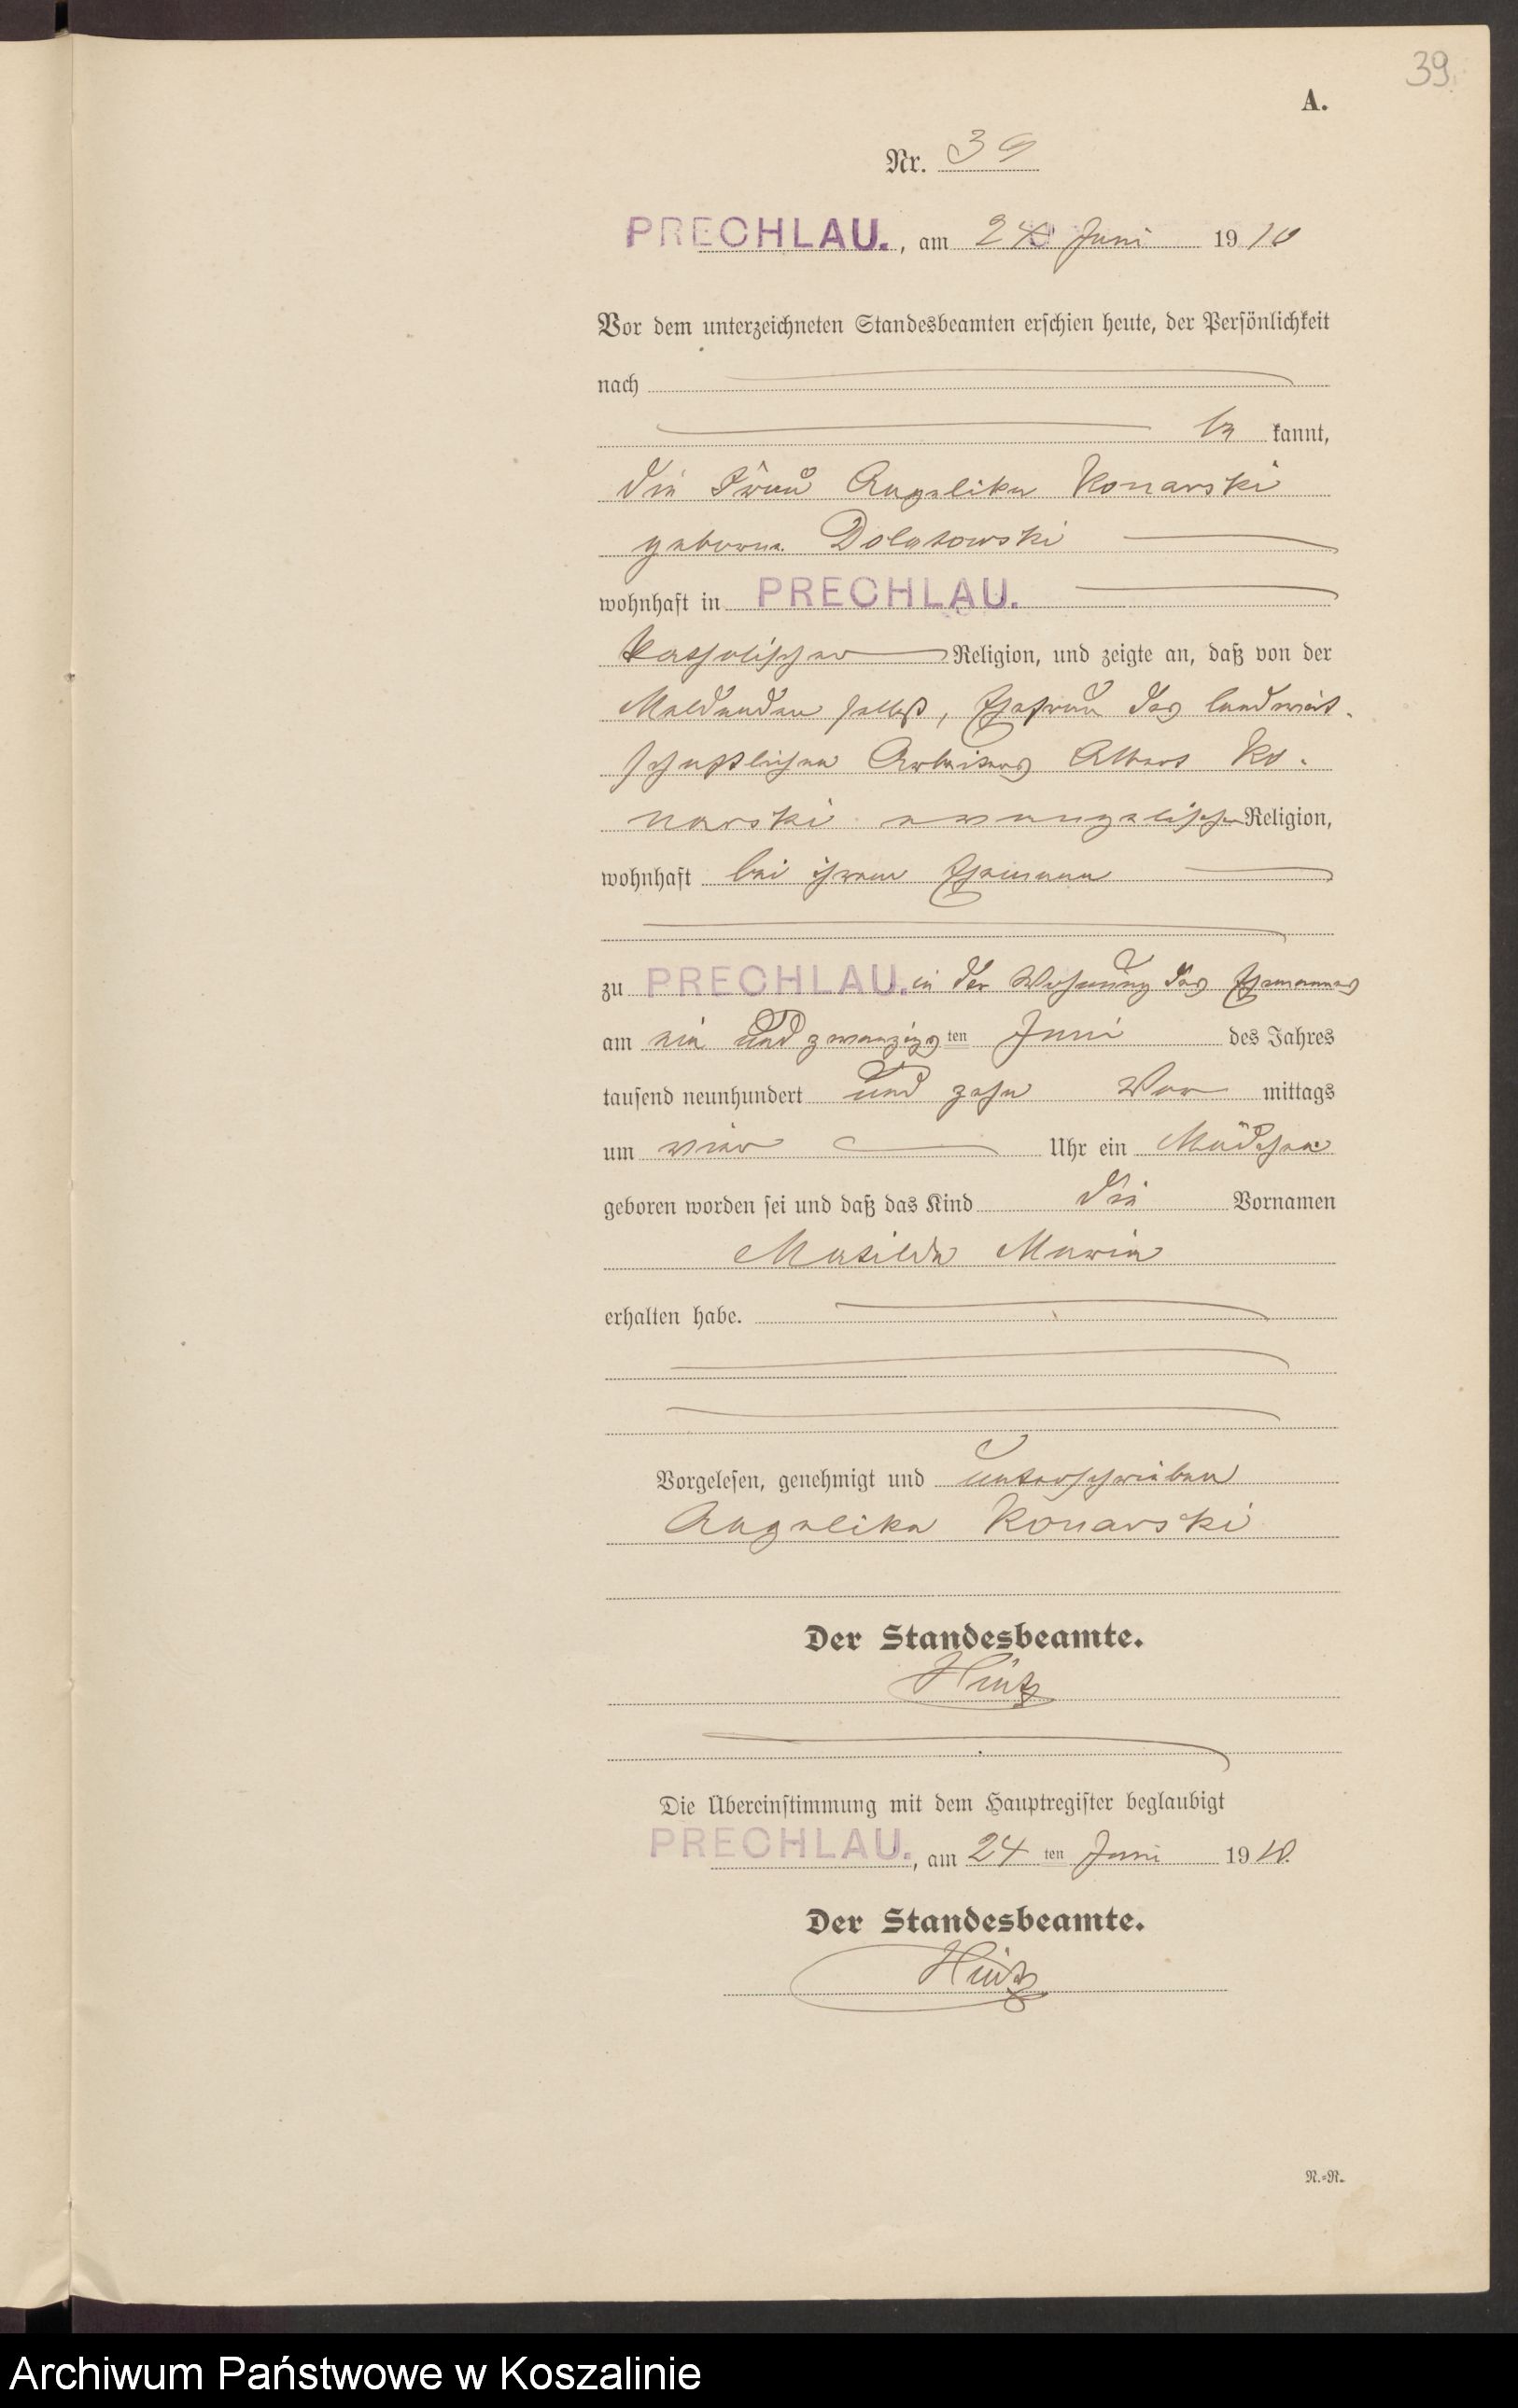 39.
A.
Nr. 39
PRECHLAU., am 24 Juni 1910
Vor dem unterzeichneten Standesbeamten erschien heute, der Persönlichkeit
nach
be kannt,
die Frau Angelika Konarski
geborene Dolatowski
wohnhaft in PRECHLAU.
katholischer Religion, und zeigte an, daß von der
Meldenden selbst, Ehefrau des landwirt-
schaftlichen Arbeiters Albert Ko-
narski evangelischer Religion,
wohnhaft bei ihrem Ehemann
zu PRECHLAU. in der Wohnung des Ehemannes
am ein und zwanzigsten Juni des Jahres
tausend neunhundert und zehn Vor mittags
um vier Uhr ein Mädchen
geboren worden sei und daß das Kind die Vornamen
Matilde Maria
erhalten habe.
Vorgelesen, genehmigt und unterschrieben
Angelika Konarski
Der Standesbeamte.
Hintz
Die Übereinstimmung mit dem Hauptregister beglaubigt
PRECHLAU., am 24 ten Juni 1910.
Der Standesbeamte.
Hintz
N.=R.
Archiwum Państwowe w Koszalinie